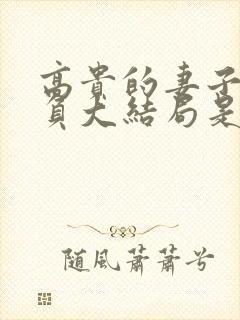 高貴的妻子
員大結局是
随風蕭蕭兮